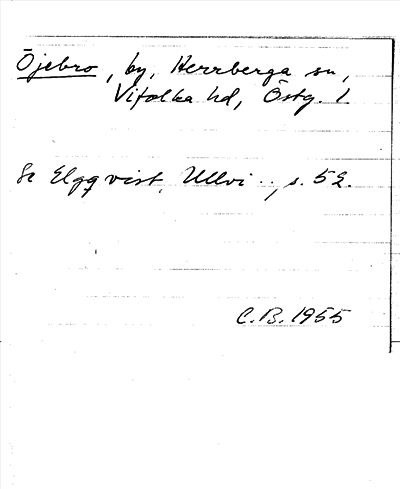 Öjebro, by, Herrberga sn,
Vifolka hd, Östg. l.
Se Elgqvist, Ullvi.., s. 52.
C.B. 1955